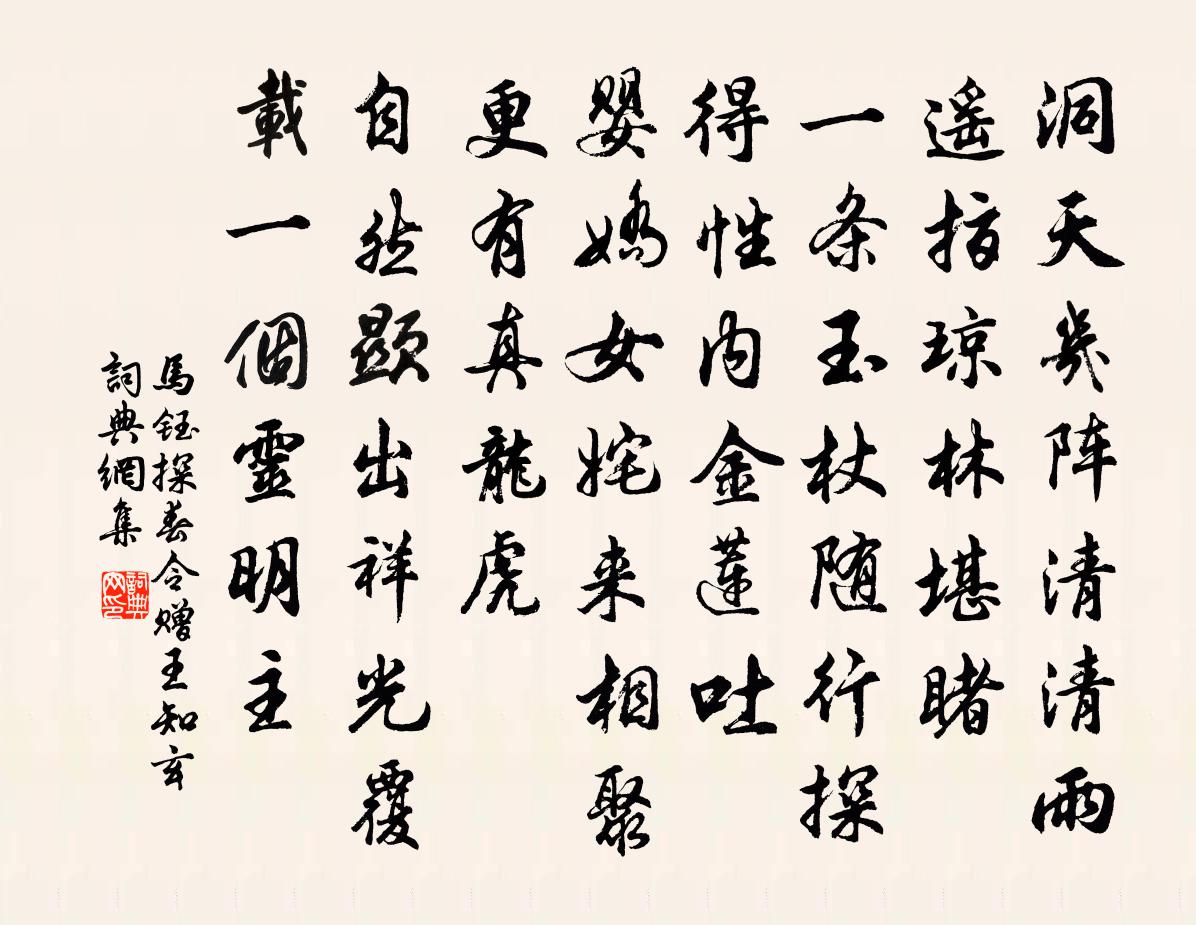 洞天幾阵清清雨
遥指琼林堪睹
一条玉杖随行探
得性内金蓮吐
嬰嬌女姹来相聚
更有真龍虎
自然顯出祥光覆
載一個靈明主
馬钰探春令赠王知玄
詞典網集
詞典网印